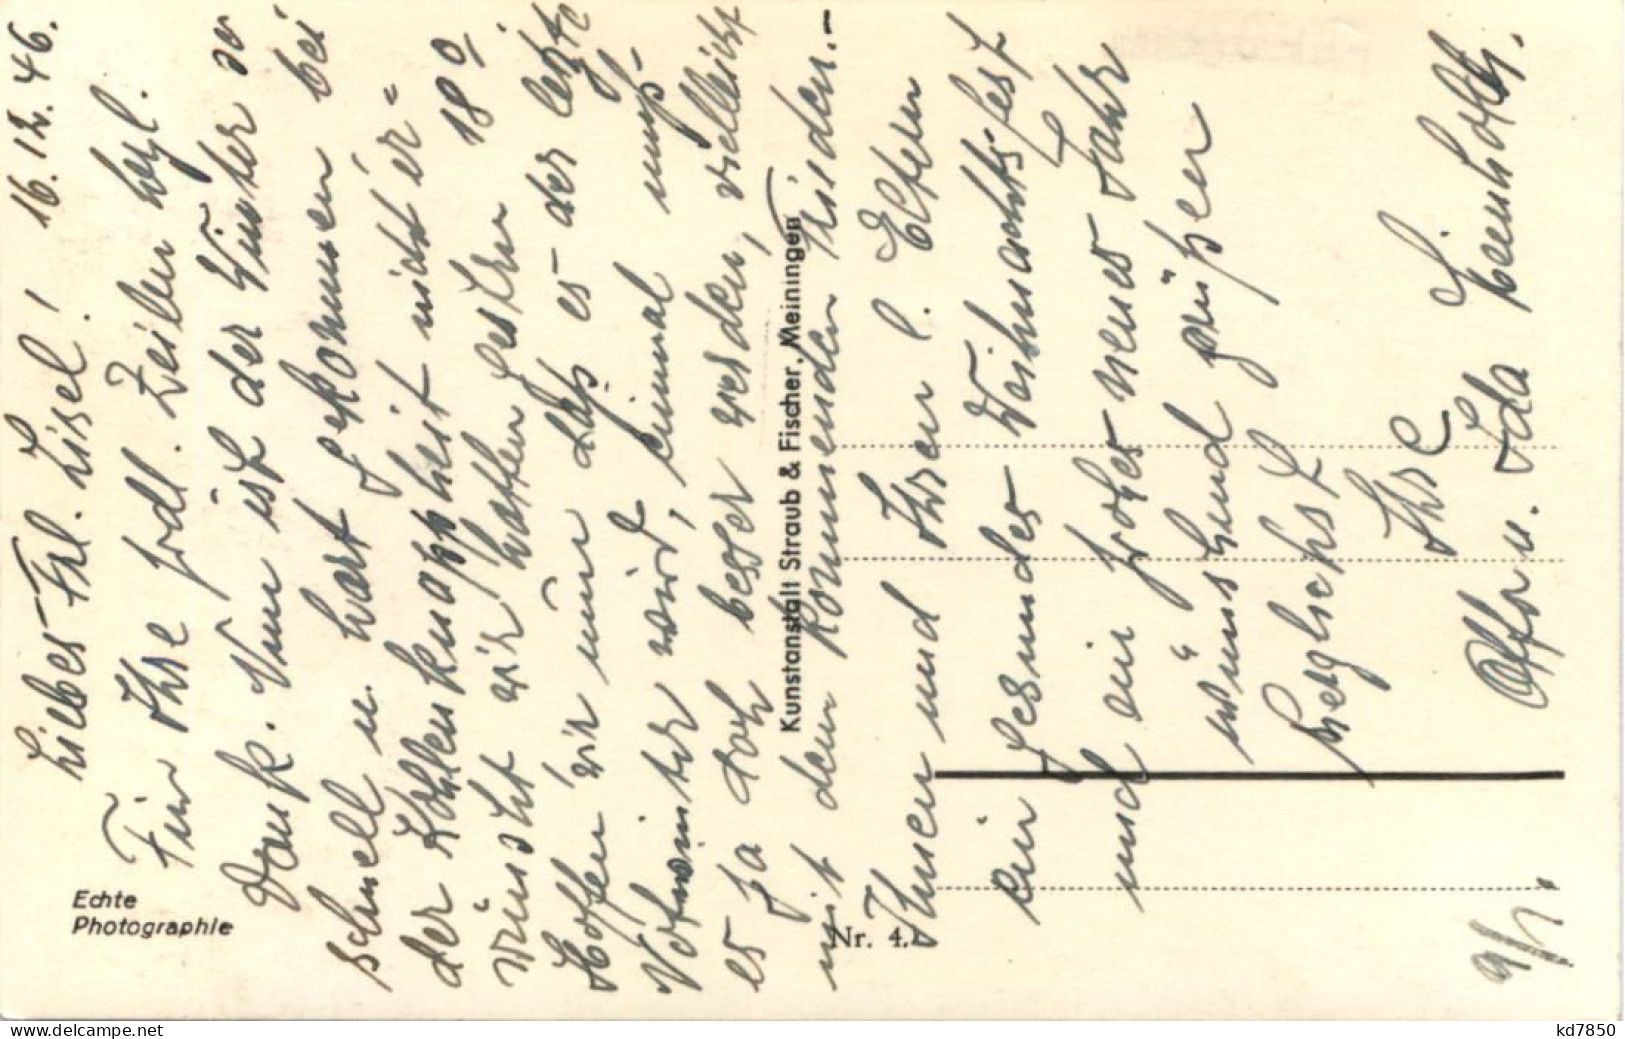 16.12.46.
Liebes Frl. Lisel!
Für Ihre frdl. Zeilen hzl.
Dank. Nun ist der Winter so
schnell u. hart gekommen bei
der Kohlenknappheit nicht er-
wünscht wir hatten gestern 18°
Hoffen wir nun daß es der letzte
Notwinter wird, einmal muß
es ja doch besser werden, vielleicht
mit dem kommenden Frieden.-
Ihnen und Ihren l. Eltern
ein gesundes Weihnachtsfest
und ein frohes neues Jahr
wünschend grüßen
herzlichst
Ihre
u. Ida
9/1.
Echte
Photographie
Kunstanstalt Straub & Fischer, Meiningen
Nr. 4.
www.delcampe.net
kd7850